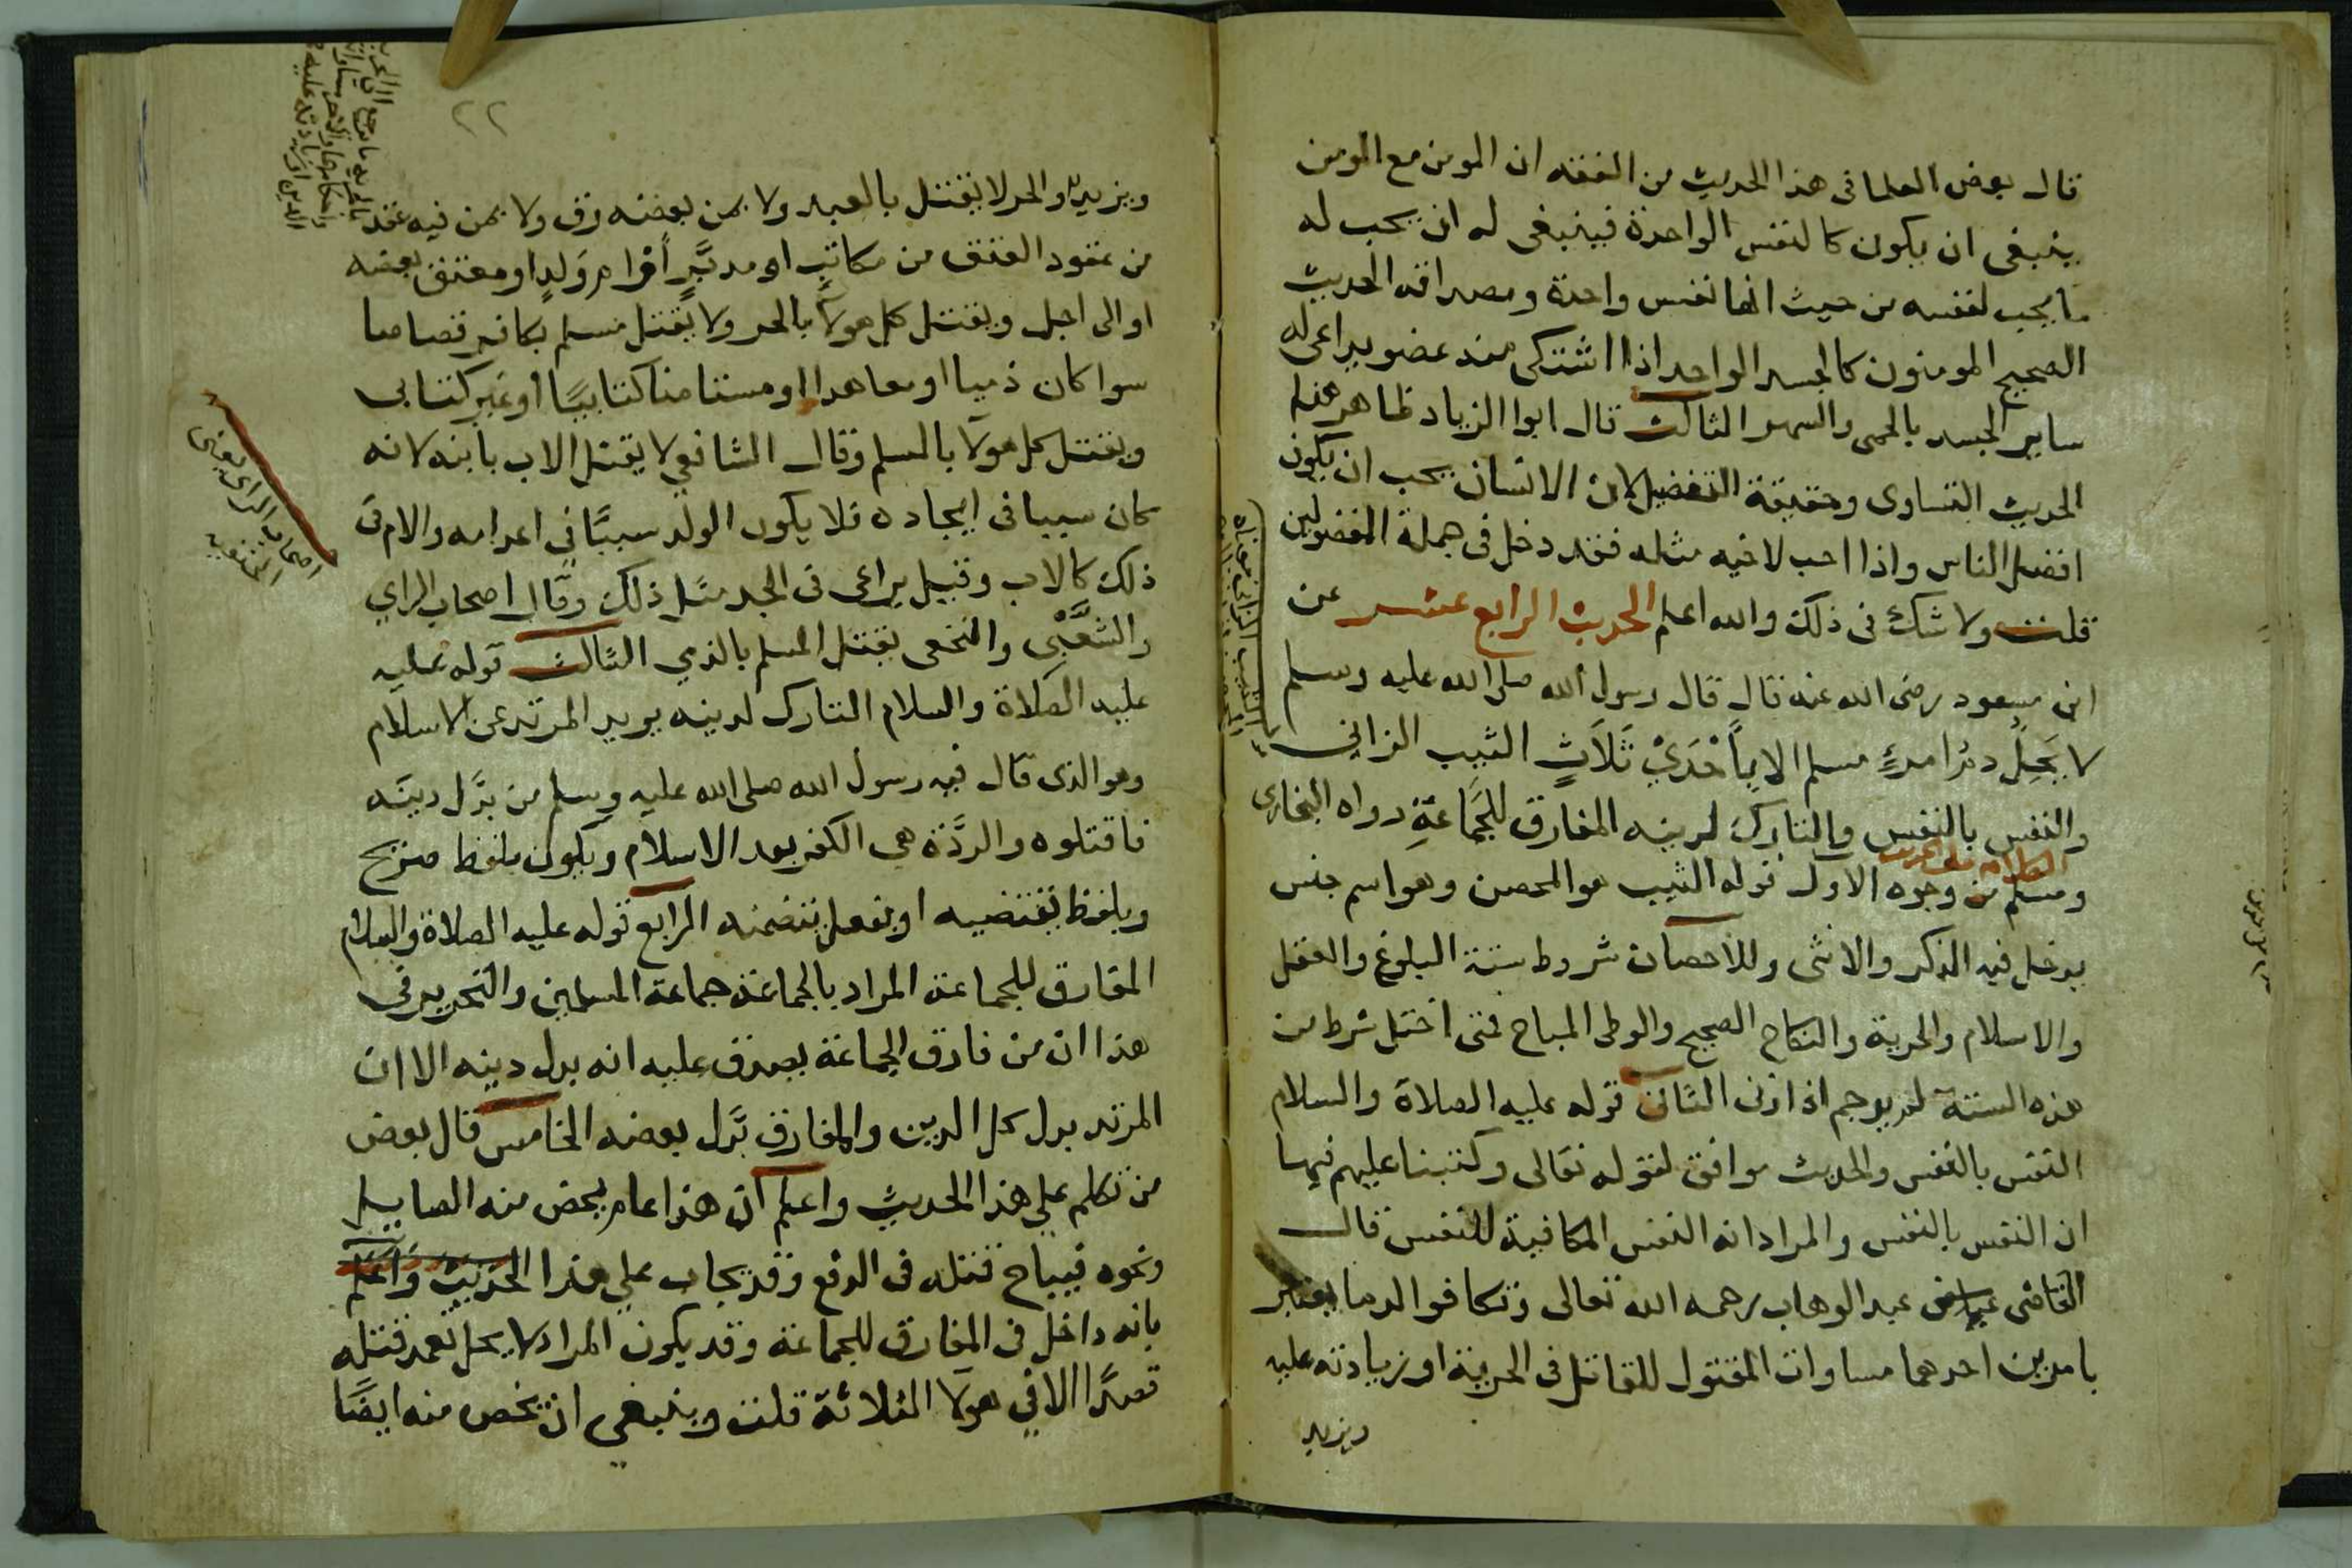 قال بعض العلما فى هذا الحديث من الفقه ان المومن مع المومن
ينبغى ان يكون كالنفس الواحدة فينبغى له ان يحب له
ما يحب لنفسه من حيث انها نفس واحدة ومصداقه الحديث
الصحيح المومنون كالجسد الواحد اذا اشتكى منه عضو تداعى له
ساير الجسد بالحمى والسهر الثالث قال ابوا الزياد ظاهر هذا
الحديث التساوى وحقيقة التفضيل لان الانسان يحب ان يكون
افضل الناس واذا احب لاخيه مثله فقد دخل فى جملة المفضولين
قلت ولا شك فى ذلك والله اعلم الحديث الرابع عشر عن
ابن مسعود رضى الله عنه قال قال رسول الله صلى الله عليه وسلم
لا يَحِلُ دمُ امرءٍ مسلم الا بِأَحْدَيْ ثَلَاَثٍ الثيب الزاني
والنفس بالنفس والتارك لدينه المفارق للجَمَاعَةِ رواه البخارى
الكلام على الحديث
ومسلم من وجوه الاول قوله الثيب هو المحصن وهو اسم جنس
يدخل فيه الذكر والانثى وللاحصان شروط ستة البلوغ والعقل
والاسلام والحرية والنكاح الصحيح والوطى المباح فمتى اختل شرط من
هذه الستة لم يرجم اذا زنى الثانى قوله عليه الصلاة والسلام
النفس بالنفس والحديث موافق لقوله تعالى وكتبنا عليهم فيها
ان النفس بالنفس والمراد انه النفس المكافية للنفس قال
القاضى عبد الوهاب رحمه الله تعالى وتكافو الدما يعتبر
بامرين احدهما مساوات المقتول للقاتل فى الحرية او زيادته عليه
ويزيد
الثيب الزانى معناه
٢٢
ويزيد والحر لا يقتل بالعبد ولا بمن بعضه رق ولا بمن فيه عقد
من عقود العتق من مكاتبٍ او مدبَّرٍ أوْ ام وَلدٍ او معتق بعضه
او الى اجل ويقتل كل هولاً بالحر ولا يُقتل مسلم بكافر قصاصا
سوا كان ذميا او معاهدا او مستامنا كتابيًا أو غير كتابى
ويقتل كل هولا بالمسلم وقال الشافعي لا يقتل الاب بابنه لانه
كان سببا فى ايجاده فلا يكون الولد سببًا في اعدامه والام فى
ذلك كالاب وقيل يراعى فى الجد مثل ذلك وقال اصحاب الراي
والشَّعْبى والنخعى يقتل المسلم بالذمي الثالث قوله عليه
عليه الصلاة والسلام التارك لدينه يريد المرتد عن الاسلام
وهو الذى قال فيه رسول الله صلى الله عليه وسلم من بدَّل دينَه
فاقتلوه والردَّة هى الكفر بعد الاسلام ويكون بلفظ صريح
وبلفظ يقتضيه او بفعل يتضمنه الرابع قوله عليه الصلاة والسلام
المفارق للجماعة المراد بالجماعة جماعة المسلمين والتحرير فى
هذا ان من فارق الجماعة يصدق عليه انه بدل دينه الا ان
المرتد بدل كل الدين والمفارق بدَّل بعضه الخامس قال بعض
من تكلم علي هذا الحديث واعلم ان هذا عام يخص منه الصايل
ونحوه فيباح قتله فى الدفع وقد يجاب علي هذا الحديث واعلم
بانه داخل فى المفارق للجماعة وقد يكون المراد لا يحل تعمد قتله
قصدًا الا في هولا الثلاثة قلت وينبغي ان يخص منه ايضًا
اصحاب الراى يعنى
الحنفيه